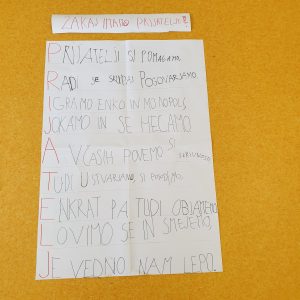 ZAKAJ IMAMO PRIJATELJE?
PRIJATELJI SI POMAGAMO.
RADI SE SKUPAJ POGOVARJAMO.
IGRAMO ENKO IN MONOPOLY.
JOKAMO IN SE HECAMO.
A VČASIH POVEMO SI
SKRIVNOST.
TUDI USTVARJAMO, SI POMAGAMO.
ENKRAT PA TUDI OBJAMEMO.
LOVIMO SE IN SMEJEMO.
JE VEDNO NAM LEPO.